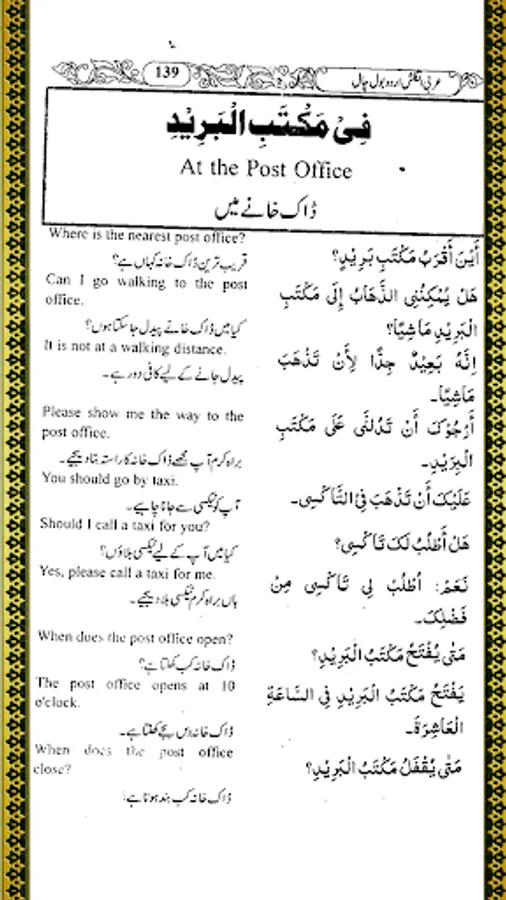 139
عربی انگلش اردو بول چال
فِیْ مَكْتَبِ الْبَرِيْدِ
At the Post Office
ڈاک خانے میں
Where is the nearest post office?
أَيْنَ أَقْرَبُ مَكْتَبِ بَرِيْدٍ؟
قریب ترین ڈاک خانہ کہاں ہے؟
Can I go walking to the post
office.
هَلْ يُمْكِنُنِی الذَّهَابُ إِلَی مَكْتَبِ
الْبَرِيْدِ مَاشِيًا؟
کیا میں ڈاک خانے پیدل جا سکتا ہوں؟
It is not at a walking distance.
اِنَّهُ بَعِيْدٌ جِدًّا لِأَنْ تَذْهَبَ
مَاشِيًا۔
پیدل جانے کے لیے کافی دور ہے۔
Please show me the way to the
post office.
أَرْجُوْكَ أَنْ تَدُلَّنِی عَلَی مَكْتَبِ
الْبَرِيْدِ۔
براہ کرم آپ مجھے ڈاک خانہ کا راستہ بتا دیجیے۔
You should go by taxi.
عَلَيْكَ أَنْ تَذْهَبَ فِی التَّاكْسِی۔
آپ کو ٹیکسی سے جانا چاہیے۔
Should I call a taxi for you?
هَلْ أَطْلُبُ لَكَ تَاكْسِی؟
کیا میں آپ کے لیے ٹیکسی بلاؤں؟
Yes, please call a taxi for me.
نَعَمْ: اُطْلُبْ لِی تَاكْسِی مِنْ
فَضْلِكَ۔
ہاں براہ کرم ٹیکسی بلا دیجیے۔
When does the post office open?
مَتٰی يُفْتَحُ مَكْتَبُ الْبَرِيْدِ؟
ڈاک خانہ کب کھلتا ہے؟
The post office opens at 10
o'clock.
يَفْتَحُ مَكْتَبُ الْبَرِيْدِ فِی السَّاعَةِ
الْعَاشِرَةِ۔
ڈاک خانہ دس بجے کھلتا ہے۔
When does the post office
close?
مَتٰی يُقْفَلُ مَكْتَبُ الْبَرِيْدِ؟
ڈاک خانہ کب بند ہوتا ہے؟